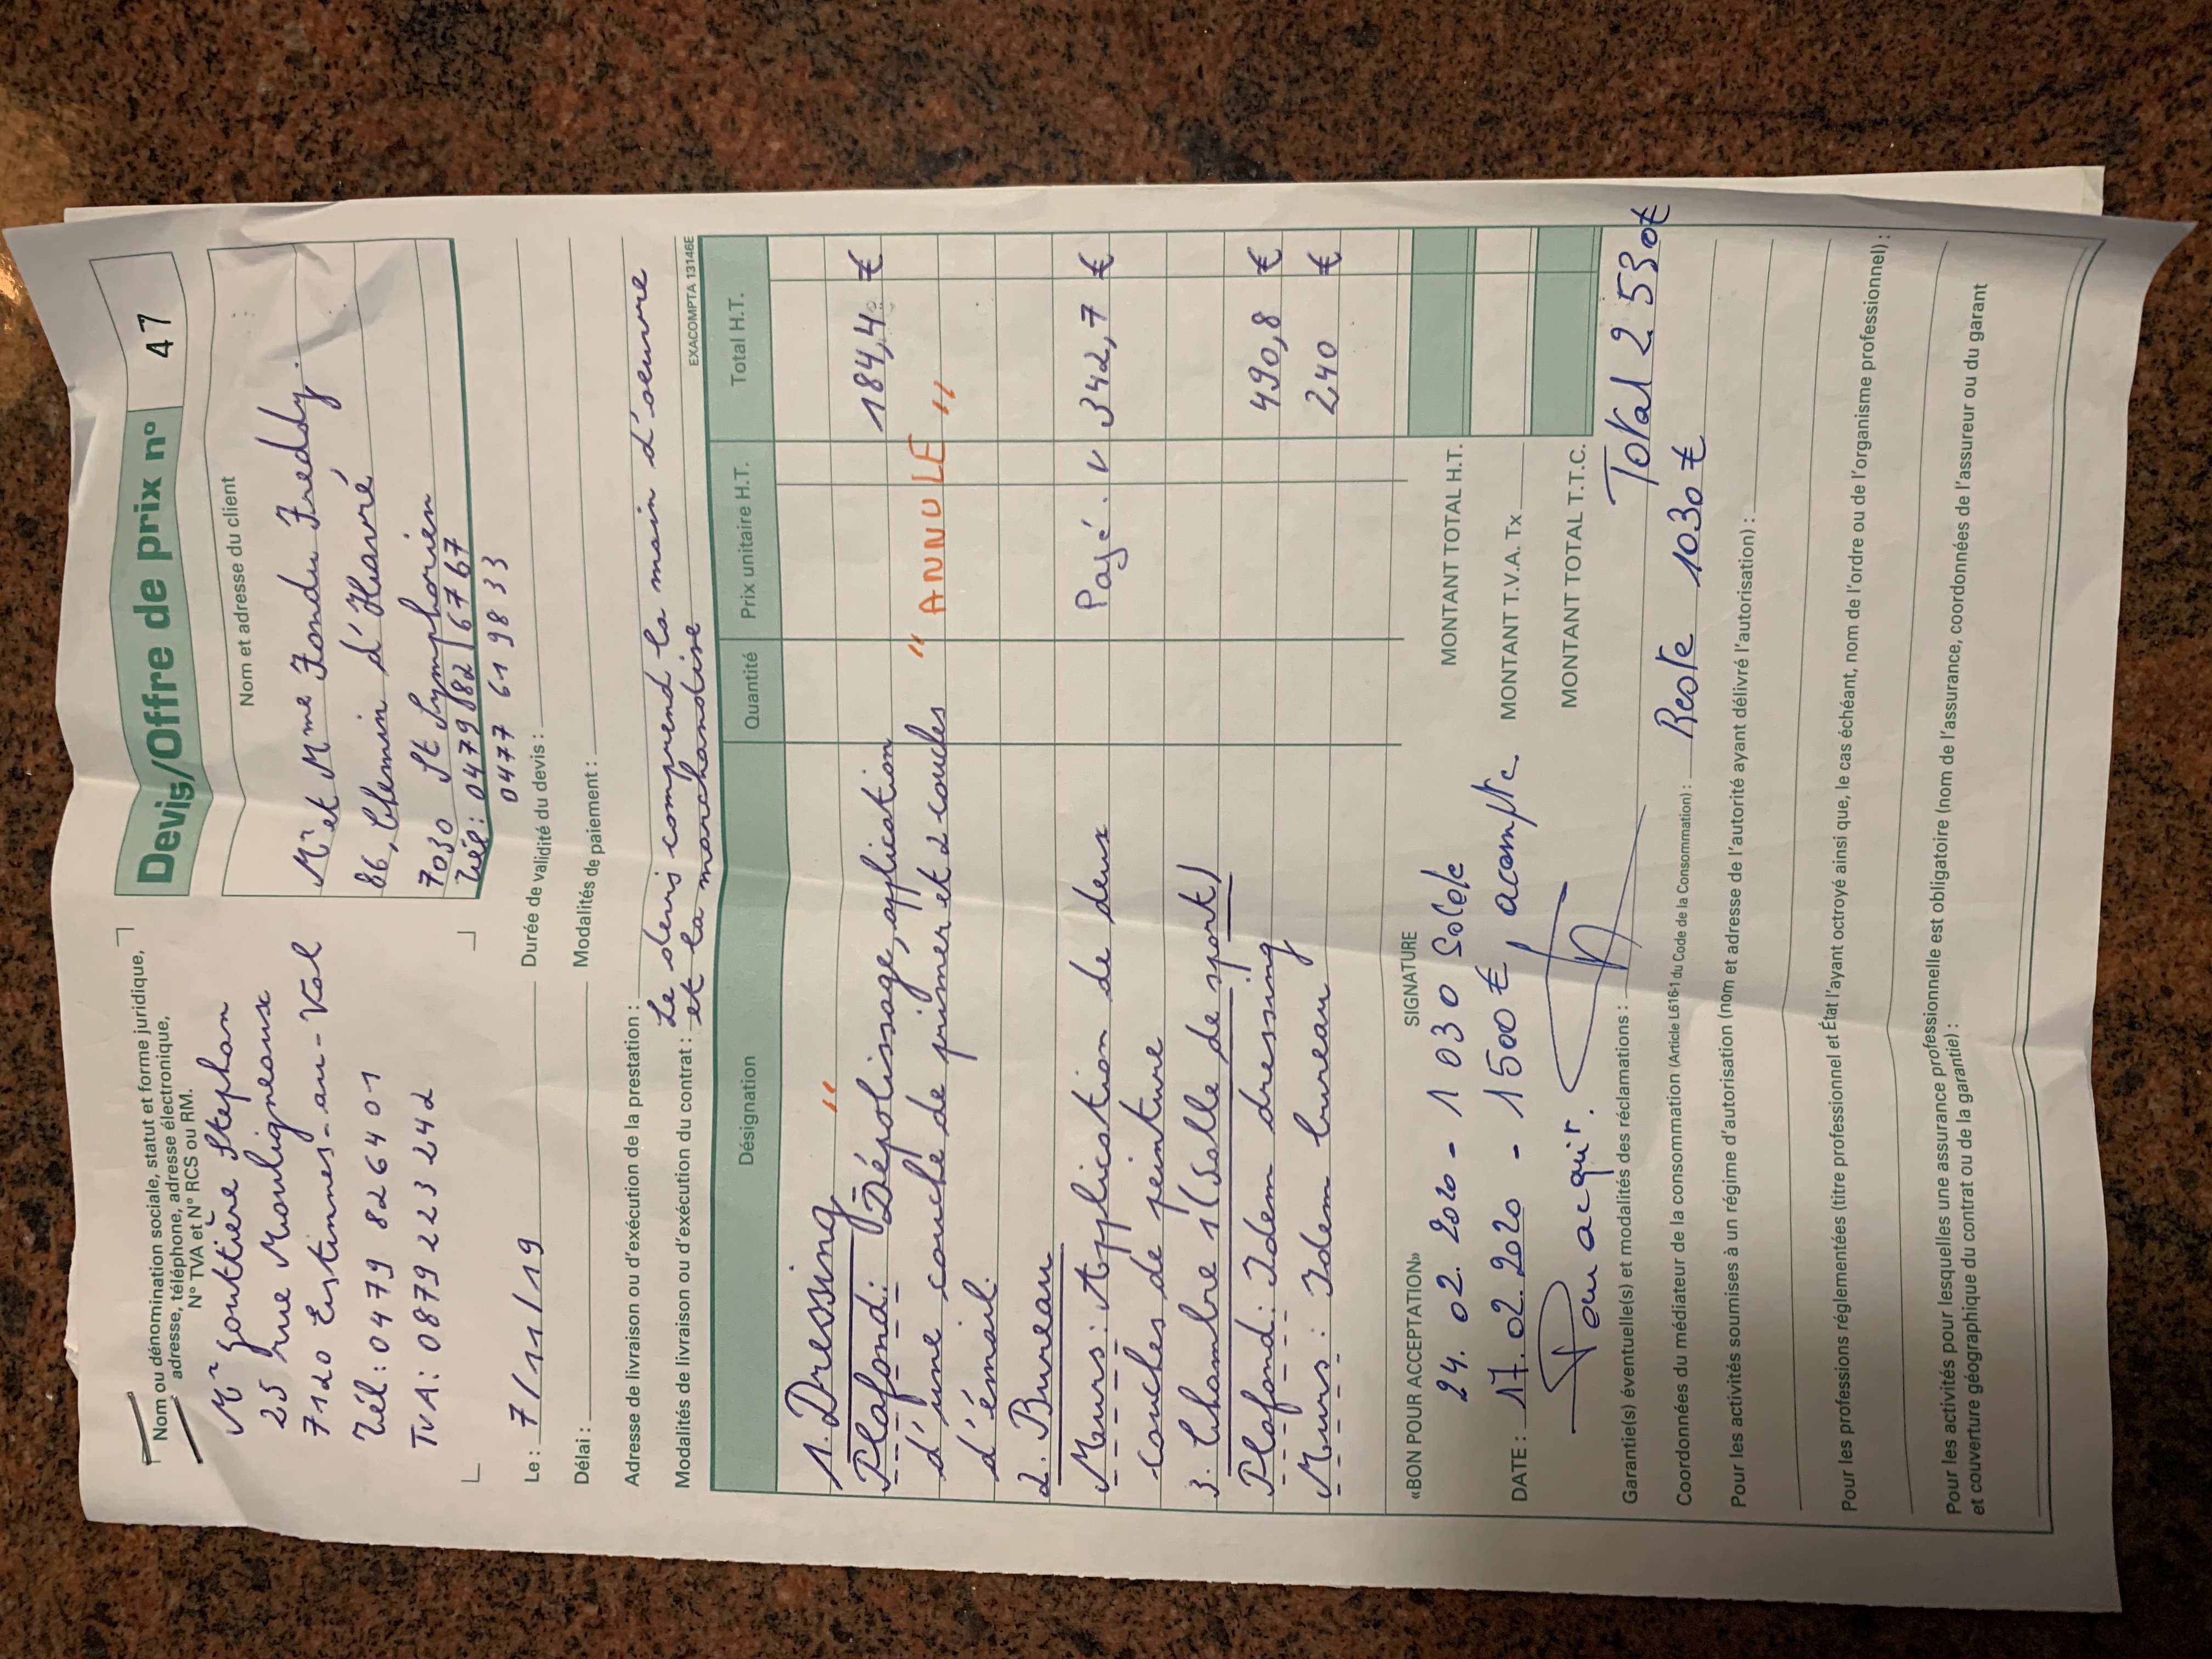 Devis/Offre de prix n° 47
Nom ou dénomination sociale, statut et forme juridique,
adresse, téléphone, adresse électronique,
N° TVA et N° RCS ou RM.
Mr Goutière Stephan
25 rue Mouligneaux
7120 Estinnes-au-Val
Tél: 0479 826401
TVA: 0879 223 242
Nom et adresse du client
Mr et Mme Fondu Freddy.
86, Chemin d'Havré
7030 St Symphorien
Tél: 0479 82/67 67
0477 61 98 33
Le : 7/11/19
Durée de validité du devis :
Délai :
Modalités de paiement :
Adresse de livraison ou d'exécution de la prestation :
Modalités de livraison ou d'exécution du contrat :
Le devis comprend la main d'oeuvre
et la marchandise
EXACOMPTA 13146E
Désignation Quantité Prix unitaire H.T. Total H.T.
1. Dressing "
Plafond: Dépolissage, application 184,4 €
d'une couche de primer et 2 couches " ANNULE "
d'émail.
2. Bureau
Murs: Application de deux Payé. v 342,7 €
couches de peinture
3. Chambre 1 (Salle de sport)
Plafond: Idem dressing 490,8 €
Murs: Idem bureau 240 €
«BON POUR ACCEPTATION» SIGNATURE
MONTANT TOTAL H.T.
24.02.2020 - 1030 Solde
DATE : 17.02.2020 - 1500 € acompte
MONTANT T.V.A. Tx
Pour acquit.
MONTANT TOTAL T.T.C.
Total 2530€
Garantie(s) éventuelle(s) et modalités des réclamations :
Reste 1030 €
Coordonnées du médiateur de la consommation (Article L616-1 du Code de la Consommation) :
Pour les activités soumises à un régime d'autorisation (nom et adresse de l'autorité ayant délivré l'autorisation) :
Pour les professions réglementées (titre professionnel et État l'ayant octroyé ainsi que, le cas échéant, nom de l'ordre ou de l'organisme professionnel) :
Pour les activités pour lesquelles une assurance professionnelle est obligatoire (nom de l'assurance, coordonnées de l'assureur ou du garant
et couverture géographique du contrat ou de la garantie) :